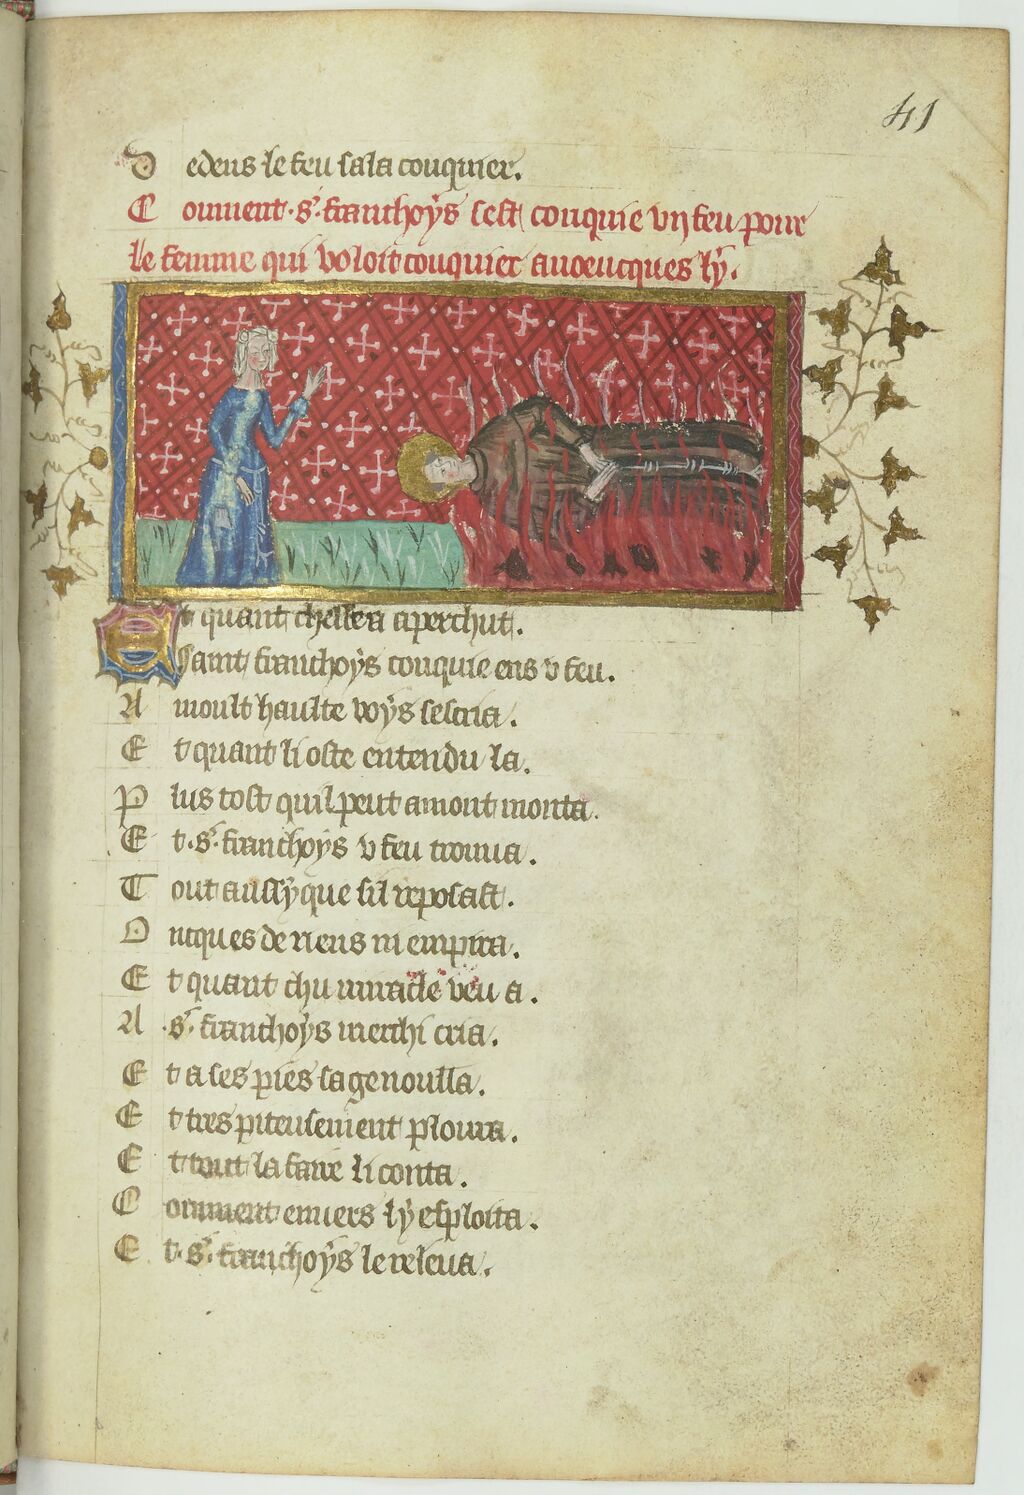 41
Dedens le feu sala couquier.
Comment .s. franchoys sest couquie vn feu pour
le femme qui voloit couquier auoeucques ly.
Et quant chelle a aperchut.
saint franchoys couquie ens v feu.
A moult haulte voys sescria.
Et quant li oste entendu la.
Plus tost quil peut amont monta.
Et .s. franchoys v feu trouua.
Tout aussy que sil reposast.
Oncques de riens ni empira.
Et quant chu miracle veu a.
A .s. franchoys merchi cria.
Et a ses pies sagenoulla.
Et tres piteusement ploura.
Et tout lafaire li conta.
Comment enuers ly esploita.
Et .s. franchoys le releua.